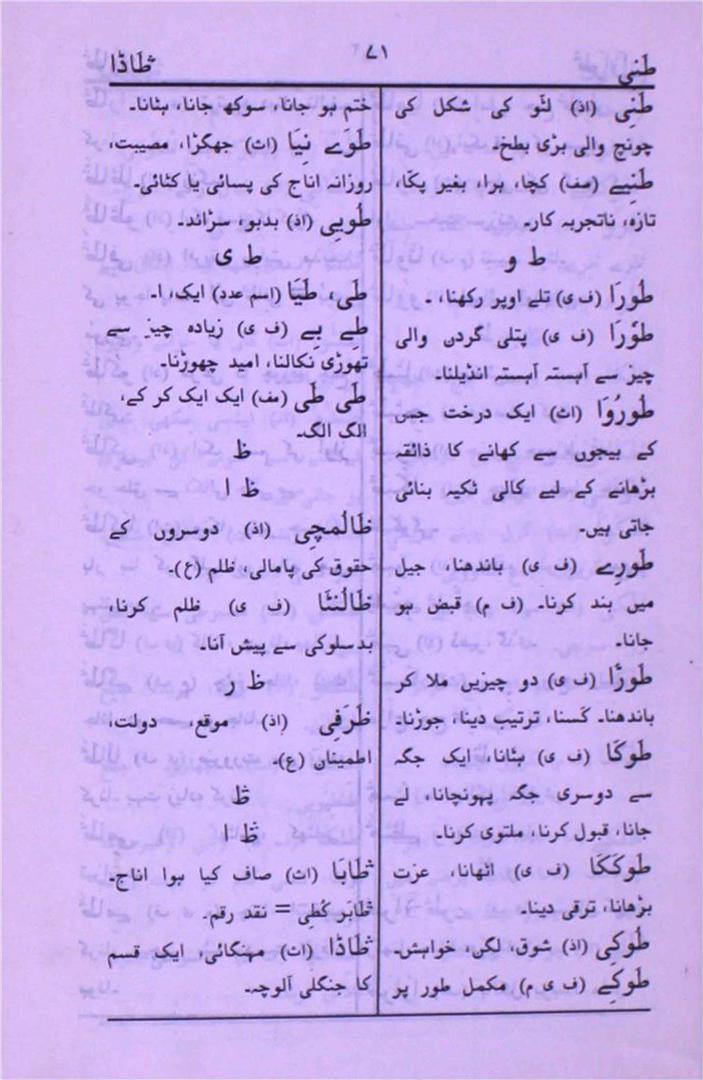 طَنی
۷۱
ظاڈا
طَنی (اذ) لٹو کی شکل کی
چونچ والی بڑی بطخ۔
طَنیے (صف) کچا، ہرا، بغیر پکا،
تازہ، ناتجربہ کار۔
ط و
طَورَا (ف ی) تلے اوپر رکھنا، ۔
طَوْرَا (ف ی) پتلی گردن والی
چیز سے آہستہ آہستہ انڈیلنا۔
طَورُوَا (اث) ایک درخت جس
کے بیجوں سے کھانے کا ذائقہ
بڑھانے کے لیے کالی ٹکیہ بنائی
جاتی ہیں۔
طَورے (ف ی) باندھنا، جیل
میں بند کرنا۔ (ف م) قبض ہو
جانا۔
طَورْا (ف ی) دو چیزیں ملا کر
باندھنا۔ کسنا، ترتیب دینا، جوڑنا۔
طَوکَا (ف ی) ہٹانا، ایک جگہ
سے دوسری جگہ پہونچانا، لے
جانا، قبول کرنا، ملتوی کرنا۔
طَوککَا (ف ی) اٹھانا، عزت
بڑھانا، ترقی دینا۔
طَوکی (اذ) شوق، لگن، خواہش۔
طَوکے (ف ی م) مکمل طور پر
ختم ہو جانا، سوکھ جانا، ہٹانا۔
طَوَے نِیَا (اث) جھگڑا، مصیبت،
روزانہ اناج کی پسائی یا کٹائی۔
طُویی (اذ) بدبو، سڑاند۔
ط ی
طَی، طَیَا (اسم عدد) ایک، ا۔
طے ہے (ف ی) زیادہ چیز سے
تھوڑی نکالنا، امید چھوڑنا۔
طَی طَی (مف) ایک ایک کر کے،
الگ الگ۔
ظ
ظ ا
ظالمچی (اذ) دوسروں کے
حقوق کی پامالی، ظلم (ع)۔
ظَالَنَثَا (ف ی) ظلم کرنا،
بدسلوکی سے پیش آنا۔
ظ ر
ظَرَفی (اذ) موقع، دولت،
اطمینان (ع)۔
ظ
ظ ا
ظَابَا (اث) صاف کیا ہوا اناج۔
ظابر کُطی = نقد رقم۔
ظاڈا (اث) مہنگائی، ایک قسم
کا جنگلی آلوچہ۔